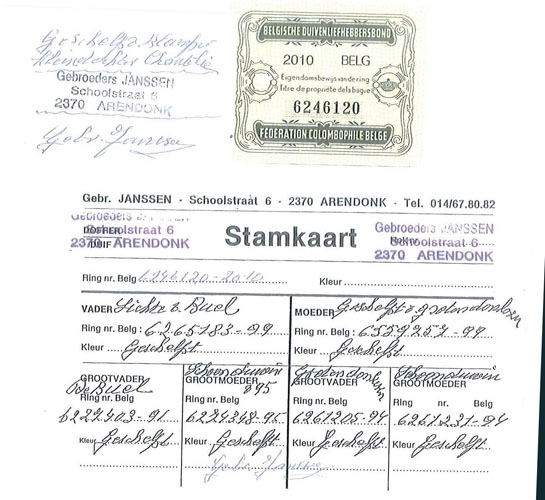 BELGISCHE DUIVENLIEFHEBBERSBOND
2010 BELG
Eigendomsbewijs van de ring
Titre de propriété de la bague
6246120
FÉDÉRATION COLOMBOPHILE BELGE
Geschelpt
Gebroeders JANSSEN
Schoolstraat 6
2370 ARENDONK
Gebr. Janssen
Gebr. JANSSEN · Schoolstraat 6 · 2370 ARENDONK · Tel. 014/67.80.82
Gebroeders JANSSEN
Schoolstraat 6
2370 ARENDONK
DOFFER
DUIF
Stamkaart
Gebroeders JANSSEN
Schoolstraat 6
2370 ARENDONK
Ring nr. Belg 6246120-2010 Kleur
VADER Lichte v. Buel
Ring nr. Belg : 6265183-99
Kleur Geschelpt
MOEDER Geschelpte
Ring nr. Belg : 6559257-99
Kleur Geschelpt
GROOTVADER
De Buel
Ring nr. Belg
6229403-91
Kleur Geschelpt
Schoonduivin
GROOTMOEDER
Ring nr. Belg
6224348-95
Kleur Geschelpt
GROOTVADER
Ring nr. Belg
6261205-94
Kleur Geschelpt
Schoonduivin
GROOTMOEDER
Ring nr. Belg
6261231-94
Kleur Geschelpt
Gebr. Janssen